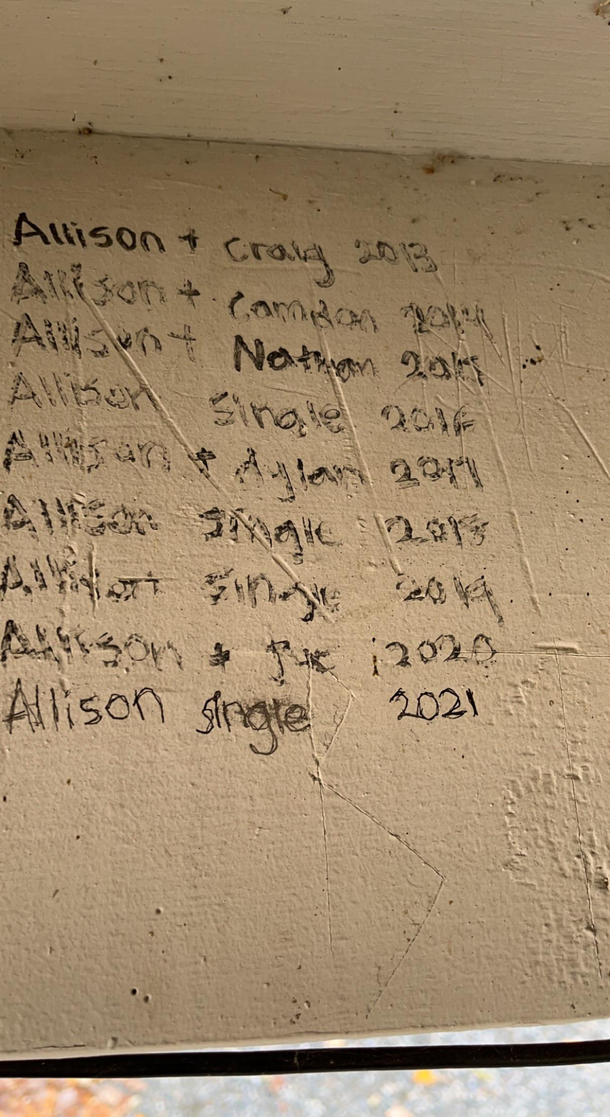 Allison + Craig 2013
Allison + Camdon 2014
Allison + Nathan
Allison Single 2016
Allison + dylan 2017
Allison Single
Allison Single 2019
Allison + 2020
Allison single 2021